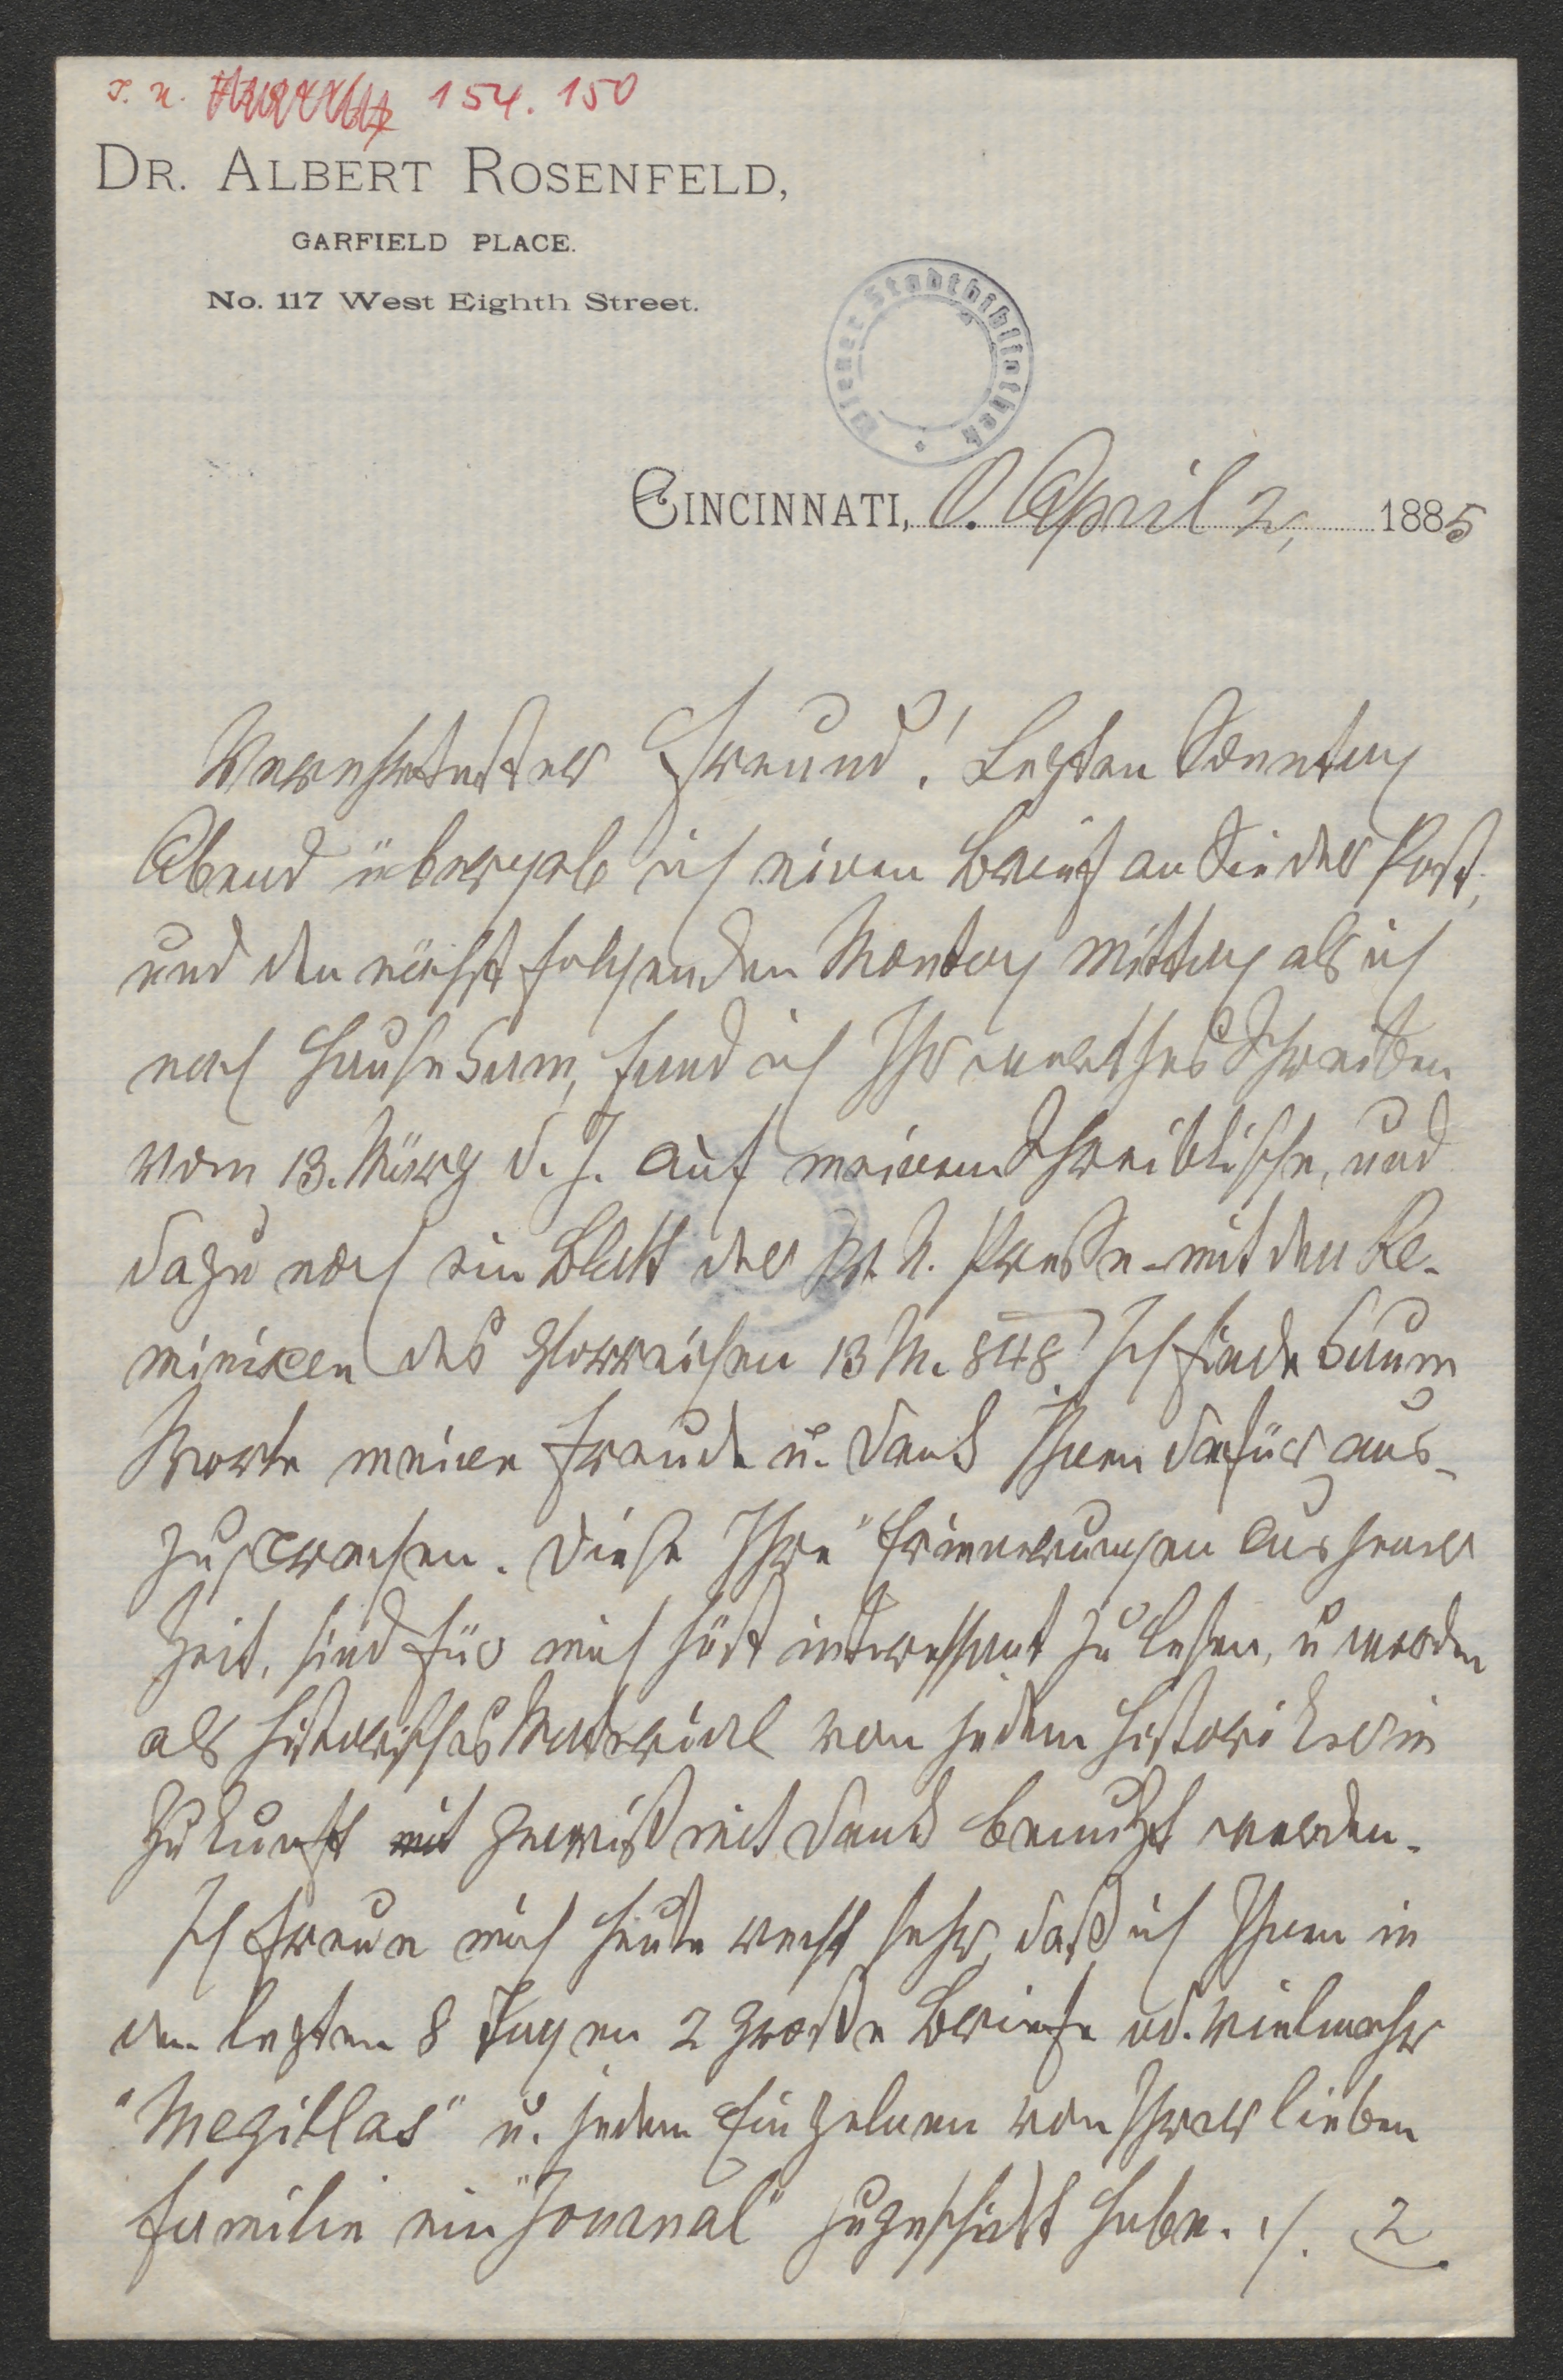 I. N. 154.150
DR. ALBERT ROSENFELD,
GARFIELD PLACE.
No. 117 West Eighth Street.
Wiener Stadtbibliothek
CINCINNATI, O. April 2, 1885
Verehrtester Freund! Letzten Sonntag
Abend übergab ich einen Brief an Sie der Post,
und den nächst folgenden Montag Mittag als ich
nach Hause kam, fand ich Ihr werthes Schreiben
vom 13. März d. J. auf meinem Schreibtische, und
dazu noch ein Blatt der N. Presse mit den Re-
minicen des glorreichen 13 M. 848. Ich finde kaum
Worte meine Freude u. Dank Ihnen dafür aus-
zusprechen. Diese Ihre "Erinnerungen aus jener
Zeit, sind für mich höst interessant zu lesen, u werden
als historisches Materiael von jedem Historiker in
Zukunft gewiß mit Dank benutzt werden.
Ich freue mich heute recht sehr, daß ich Ihnen in
den letzten 8 Tagen 2 große Briefe od. vielmehr
"Megillas" u. jedem Einzelnen von Ihrer lieben
Familie ein "Journal" zugeschickt habe. ./. 2